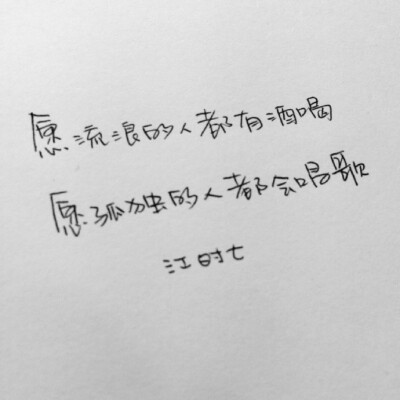 愿流浪的人都有酒喝
愿孤独的人都会唱歌
江时七